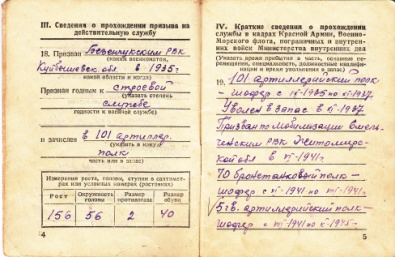 III. Сведения о прохождении призыва на
действительную службу
18. Призван Безенчукским РВК
(каким военкоматом,
Куйбышевск обл. в 1935 г.
какой области и когда)
Признан годным к строевой
(указать степень
службе
годности к военной службе)
и зачислен в 101 артиллер.
(указать в какую
полк
часть или в запас)
Измерения роста, головы, ступни в сантимет-
рах или условных номерах (ростовках)
Рост
Окружность головы
Размер противогаза
Размер обуви
156 56 2 40
4
IV. Краткие сведения о прохождении
службы в кадрах Красной Армии, Военно-
Морского флота, пограничных и внутрен-
них войск Министерства внутренних дел
(Указать время прибытия в часть, основные пе-
ремещения, специальность, должностные квалифи-
кации и время увольнения в запас)
19. 101 артиллерийский полк
- шофер с
Уволен в запас в
Призван по мобилизации
РВК Житомирс-
кой обл в VI-1941 г.
70 бронетанковый полк -
шофер с VI-1941 по
артиллерийский полк -
шофер с
5